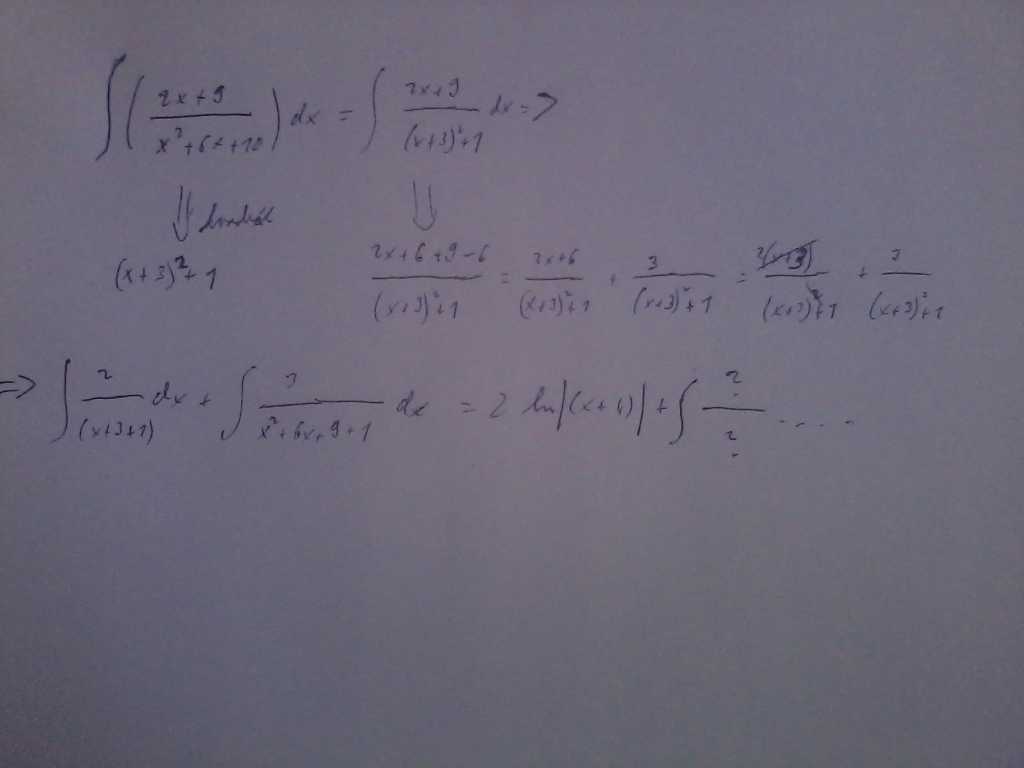 ∫ ( (2x+9)/(x²+6x+10) ) dx = ∫ (2x+9)/((x+3)²+1) dx =>
⇓ ⇓
(x+3)²+1 (2x+6+9-6)/((x+3)²+1) = (2x+6)/((x+3)²+1) + 3/((x+3)²+1) = 2(x+3)/((x+3)²+1) + 3/((x+3)²+1)
=> ∫ 2/(x+3+1) dx + ∫ 3/(x²+6x+9+1) dx = 2 ln|(x+4)| + ∫ ?/? ....